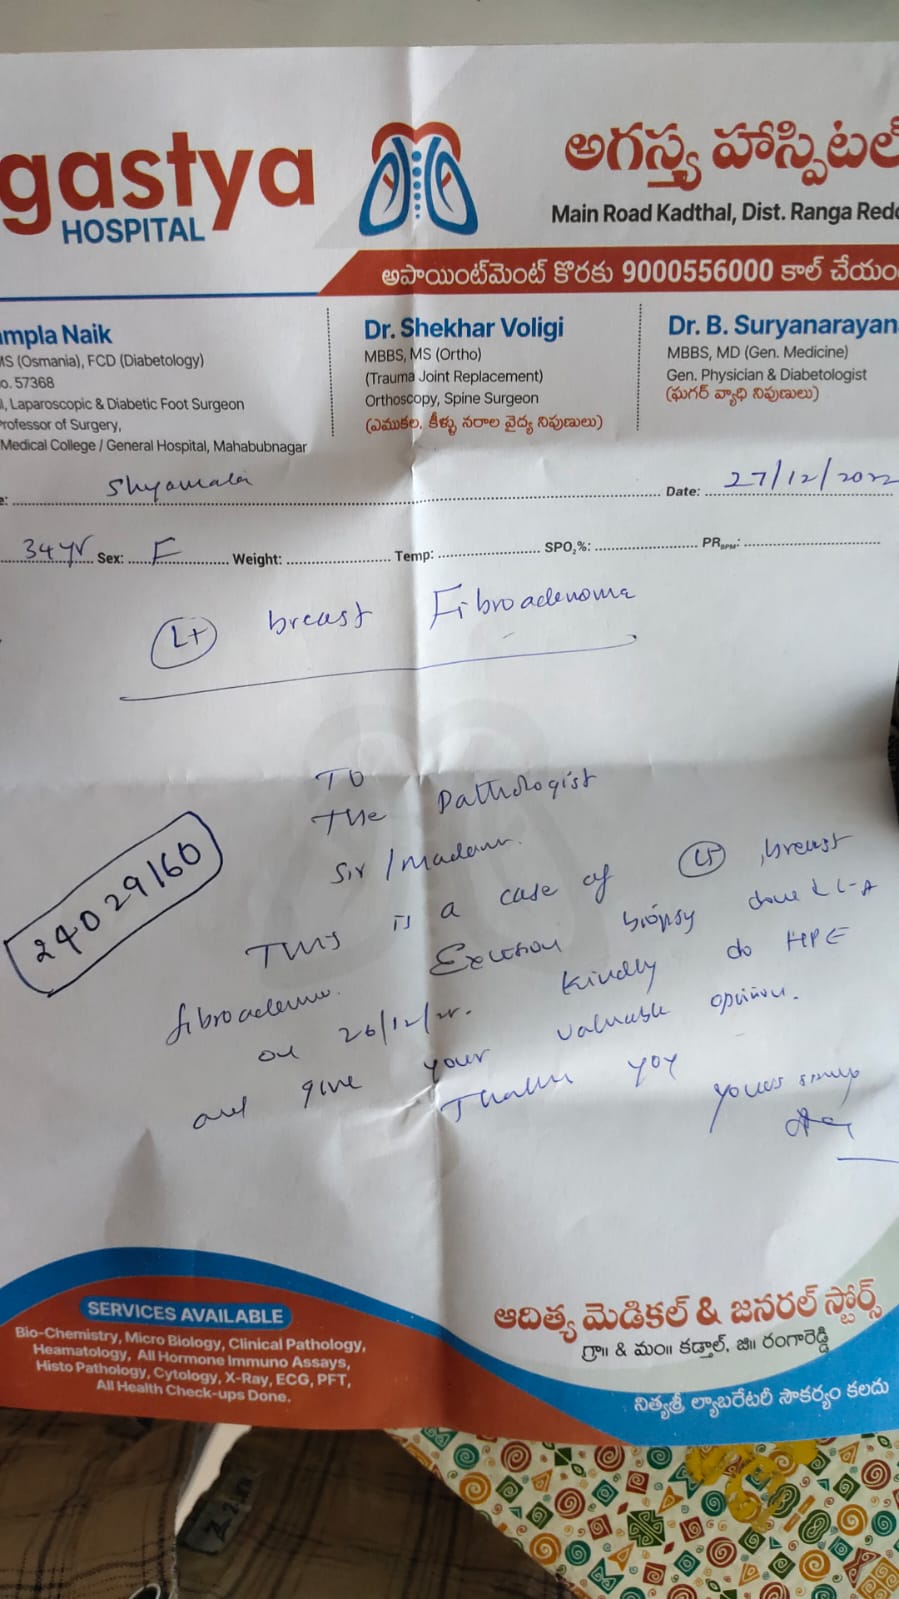 gastya
HOSPITAL
అగస్త్య హాస్పిటల్
Main Road Kadthal, Dist. Ranga Redd
అపాయింట్‌మెంట్ కొరకు 9000556000 కాల్ చేయం
ampla Naik
MS (Osmania), FCD (Diabetology)
o. 57368
l, Laparoscopic & Diabetic Foot Surgeon
rofessor of Surgery,
Medical College / General Hospital, Mahabubnagar
Dr. Shekhar Voligi
MBBS, MS (Ortho)
(Trauma Joint Replacement)
Orthoscopy, Spine Surgeon
(ఎముకల, కీళ్ళు నరాల వైద్య నిపుణులు)
Dr. B. Suryanarayan
MBBS, MD (Gen. Medicine)
Gen. Physician & Diabetologist
(షుగర్ వ్యాధి నిపుణులు)
e: Shyamala Date: 27/12/2022
34 yr Sex: F Weight: Temp: SPO2%: PRBPM:
Lt breast Fibroadenoma
To
The Pathologist
Sir/madam.
This is a case of Lt breast
fibroadenoma. Excision biopsy done L-A
on 26/12/22. Kindly do HPE
and give your valuable opinion.
Thank you
yours
24029160
SERVICES AVAILABLE
Bio-Chemistry, Micro Biology, Clinical Pathology,
Heamatology, All Hormone Immuno Assays,
Histo Pathology, Cytology, X-Ray, ECG, PFT,
All Health Check-ups Done.
ఆదిత్య మెడికల్ & జనరల్ స్టోర్స్
గ్రా॥ & మం॥ కడ్తాల్, జి॥ రంగారెడ్డి
నిత్యశ్రీ ల్యాబరేటరీ సౌకర్యం కలదు